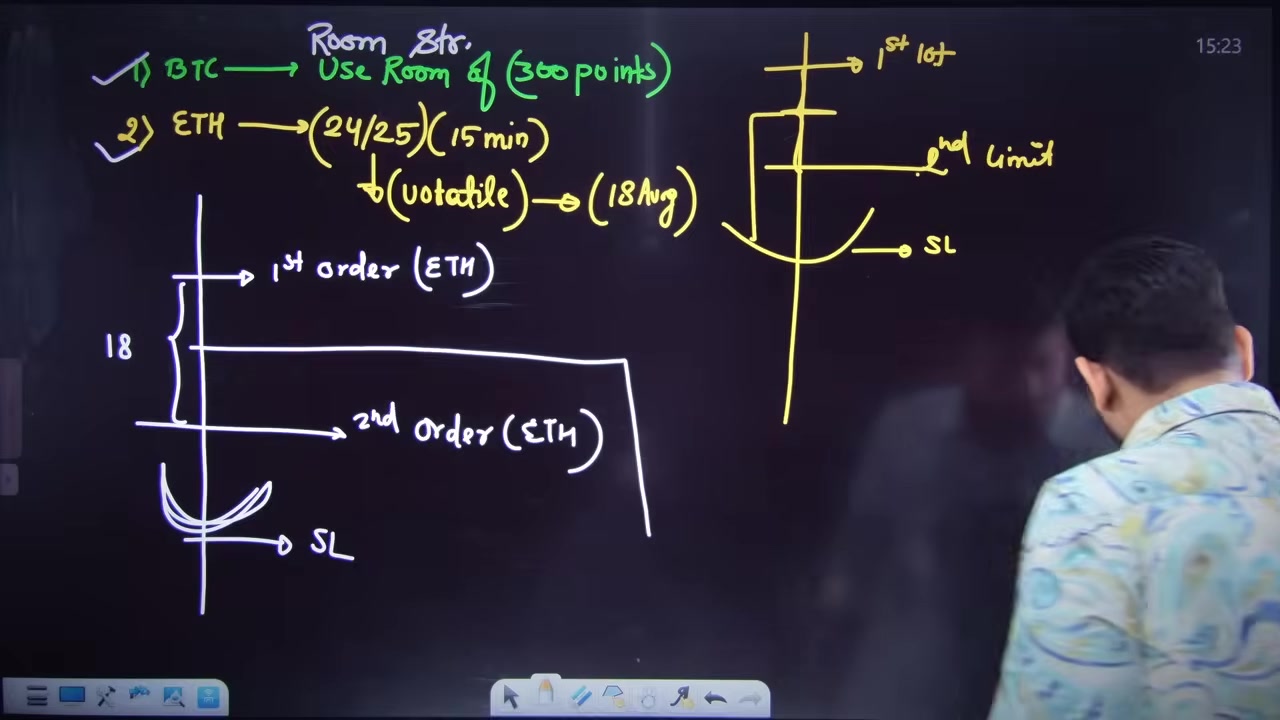 Room Str.
1) BTC → Use Room of (300 points)
2) ETH → (24/25) (15 min)
(volatile) → (18 Avg)
1st order (ETH)
18
2nd order (ETH)
SL
1st lot
2nd limit
SL
15:23